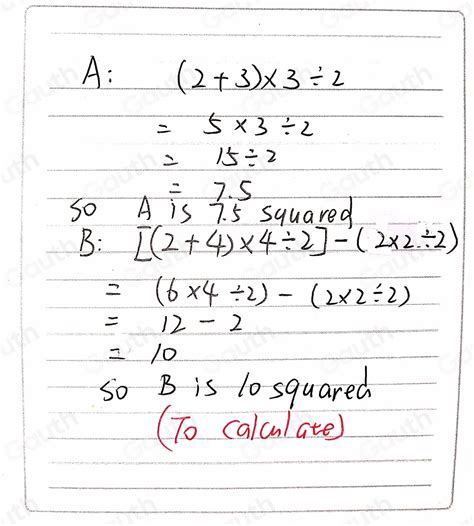 A: (2+3)×3÷2
= 5×3÷2
= 15÷2
= 7.5
so A is 7.5 squared
B: [(2+4)×4÷2]-(2×2÷2)
= (6×4÷2)-(2×2÷2)
= 12-2
= 10
so B is 10 squared
(To calculate)